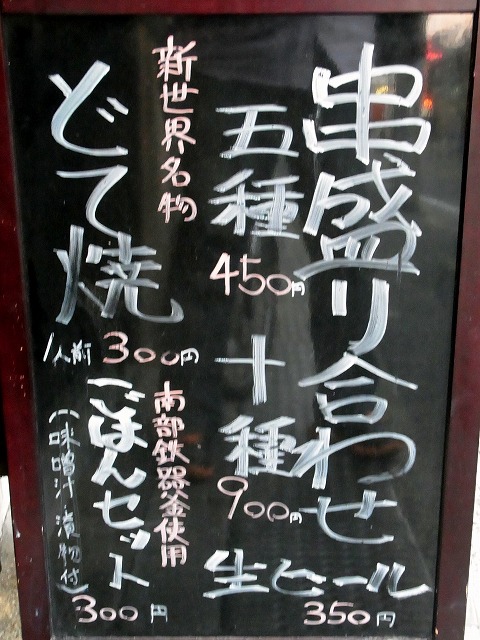 串盛り合わせ
五種
450円
十種
900円
生ビール
350円
新世界名物
どて焼
1人前 300円
南部鉄器釜使用
ごはんセット
(味噌汁 漬物付)
300円